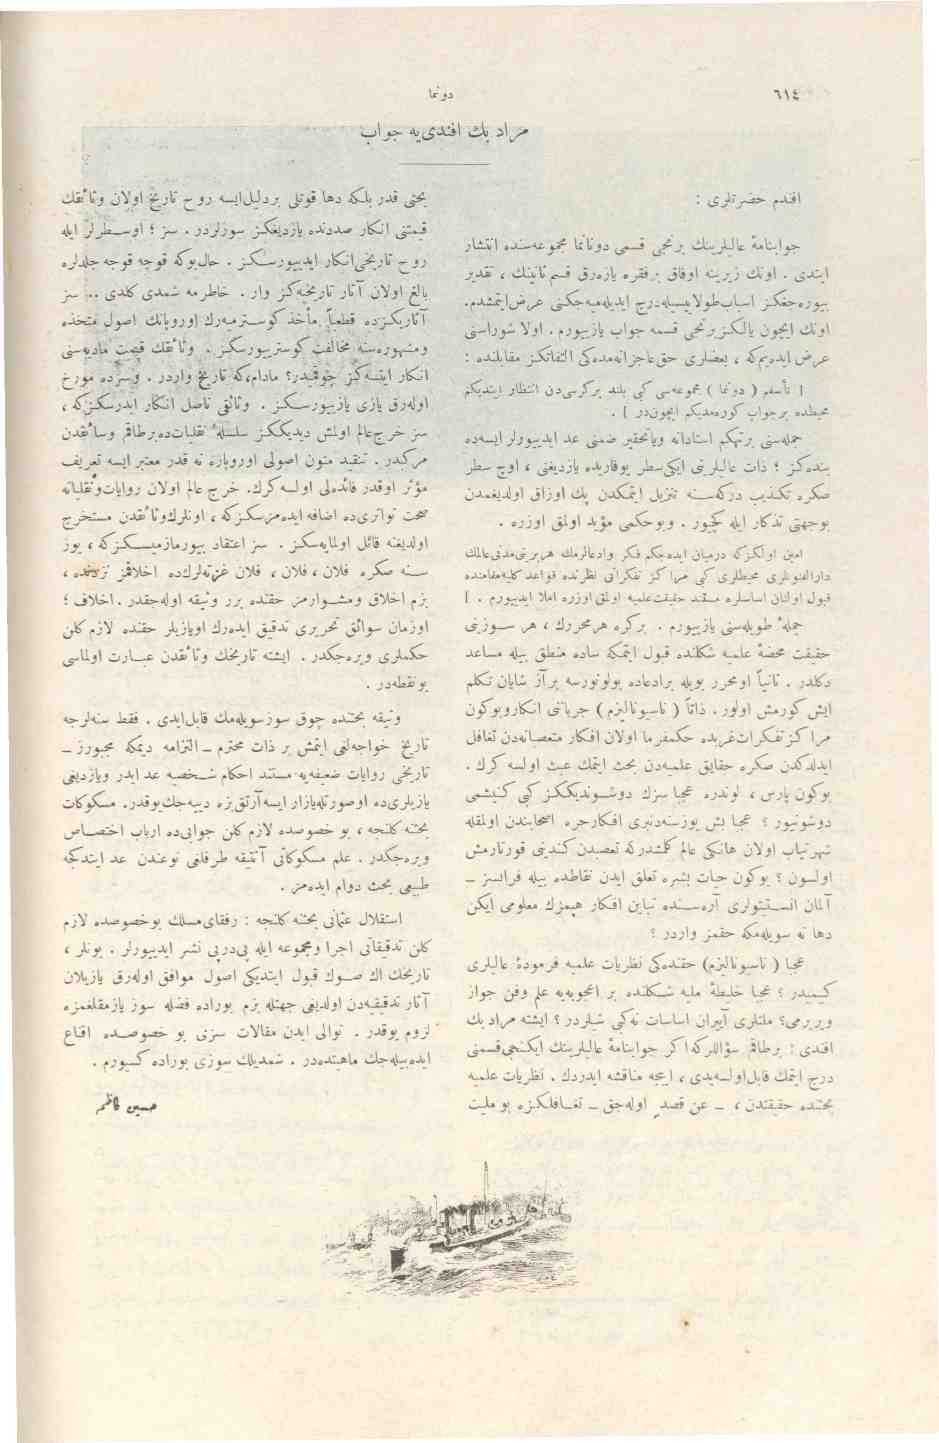 ٦١٤
دونما
مراد بك افندی‌یه جواب
افندم حضرتلری :
جوابنامهٔ عالیلرینك برنجی قسمی دونانما مجموعه‌سنده انتشار
ایتدی . اونك زیرینه اوفاق برفقره یازه‌رق قسم ثانینك ، تقدیر
بیوره‌جغكز اسباب‌طولاییسیله‌درج ایدیله‌میه‌جكنی عرض‌ایتمشدم.
اونك ایچون یالكز برنجی قسمه جواب یازییورم . اولا شوراسنی
عرض ایده‌یم‌كه ، بعضلری حق‌عاجزانه‌مده‌كی التفاتكز مقابلنده :
[ تأسفم ( دونما ) مجموعه‌سی كبی بلند بركرسی‌دن انتظار ایتدیكم
محیطده برجواب كوره‌مدیكم ایچون‌در ] .
جمله‌سنی برتهكم استادانه ویاتحقیر ضمنی عد ایدییورلر ایسه‌ده
بنده‌كز ؛ ذات عالیلرینی ایكی‌سطر یوقاریده یازدیغنی ، اوچ سطر
صكره تكذیب دركه‌سنه تنزیل ایتمكدن پك اوزاق اولدیغمدن
بوجهتی تذكار ایله كچیور . وبوحكمی مؤید اولمق اوزره .
امین اولكزكه درمیان ایده‌جكم فكر وادعالرمك هربرینی‌مدنی‌عالمك
دارالفنونلری محیطلری كبی مراكز تفكراتی نظرنده قواعد كلیه‌مقامنده
قبول اولنان اساسلره مستند حقیقت‌علمیه اولمق‌اوزره املا ایدییورم . ]
جملهٔ طویله‌سنی یازییورم . بركره هرمحررك ، هر سوزینی
حقیقت محضهٔ علمیه شكلنده قبول ایتمكه ساده منطق بیله مساعد
دكلدر . ثانیاً اومحرر بویله برادعاده بولونورسه برآز شایان تكلم
ایش كورمش اولور . ذاتاً ( ناسیونالیزم ) جریاننی انكاروبوكون
مراكز تفكرات‌غربده حكمفرما اولان افكار متعصبانه‌دن تغافل
ایدلدكدن صكره حقایق علمیه‌دن بحث ایتمك عبث اولسه كرك .
بوكون پارس ، لوندره عجبا سزك دوشوندیككز كبی كنیشمی
دوشونیور ؟ عجبا بش یوزسنه‌دنبری افكارحره اصحابندن اولمقله
شهرتیاب اولان هانكی عالم كلمشدركه تعصبدن كندینی قورتارمش
اولسون ؟ بوكون حیات بشره تعلق ایدن نقاطده بیله فرانسز –
آلمان انستیتولری آره‌سنده تباین افكار هپمزك معلومی ایكن
دها نه سویله‌مكه حقمز واردر ؟
عجبا ( ناسیونالیزم) حقنده‌كی نظریات علمیه فرمودهٔ عالیلری
كیمیدر ؟ عجبا خلیطهٔ ملیه شكلنده بر اعجوبه‌یه علم وفن جواز
ویررمی؟ ملتلری آییران اساسات نه‌كبی شیلردر ؟ ایشته مراد بك
افندی : برطاقم سؤاللركه اكر جوابنامهٔ عالیلرینك ایكنجی‌قسمنی
درج ایتمك قابل‌اولسه‌یدی ، اییجه مناقشه ایدردك . نظریات علمیه
بحثنده حقیقتدن ، – عن قصدٍ اوله‌جق – تغافلكزه بو ملیت
بحثی قدر بلكه دها قوتلی بردلیل‌ایسه روح تاریخ اولان وثائقك
قیمتنی انكار صددنده یازدیغكز سوزلردر . سز ؛ اوسطرلر ایله
روح تاریخی‌انكار ایدییورسكز . حال‌بوكه قوجه قوجه جلدلره
بالغ اولان آثار تاریخیه‌كز وار . خاطرمه شمدی كلدی .. سز
آثاریكزده قطعیاً مأخذ كوسترمیه‌رك اوروپانك اصول متخذه
ومشهوره‌سنه مخالفت كوسترییورسكز . وثائقك قیمت مادیه‌سنی
انكار ایتسه‌كز چوقمیدر؟ مادام‌كه تاریخ واردر . وسزده مورخ
اوله‌رق یازی یازییورسكز . وثائقی ناصل انكار ایدرسكزكه ،
سز خرج‌عالم اولمش دیدیككز سلسلهٔ نقلیات‌ده‌برطاقم وثائقدن
مركبدر . تنقید متون اصولی اوروپاده نه قدر معتبر ایسه تعریف
مؤثر اوقدر فائده‌لی اولسه‌كرك. خرج عالم اولان روایات‌ونقلیاته
صحت تواتری‌ده اضافه ایده‌مزسكزكه ، اونلرك‌وثائقدن مستخرج
اولدیغنه قائل اولمایه‌سكز . سز اعتقاد بیورمازمیسكزكه ، یوز
سنه صكره فلان ، فلان ، فلان غزته‌لرك‌ده اخلافمز نزدنده ،
بزم اخلاق ومشوارمز حقنده برر وثیقه اوله‌جقدر. اخلاف ؛
اوزمان سوائق تحریری تدقیق ایده‌رك اویازیلر حقنده لازم كلن
حكملری ویره‌جكدر . ایشته تاریخك وثائقدن عبارت اولماسی
بونقطه‌در .
وثیقه بحثنده چوق سوزسویله‌مك قابل‌ایدی . فقط سنه‌لرجه
تاریخ خواجه‌لغی ایتمش بر ذات محترم – التزامه دیمكه مجبورز –
تاریخی روایات ضعیفه‌یه مستند احكام شخصیه عد ایدر ویازدیغی
یازیلری‌ده اوصورتله‌یازار ایسه‌آرتق‌بزه دییه‌جك‌یوقدر. مسكوكات
بحثنه كلنجه ، بو خصوصده لازم كلن جوابی‌ده ارباب اختصاص
ویره‌جكدر . علم مسكوكاتی آنتیقه طرفلغی نوعندن عد ایتدكجه
طبیعی بحث دوام ایده‌مز .
استقلال عثمانی بحثنه كلنجه : رفقای‌مسلك بوخصوصده لازم
كلن تدقیقاتی اجرا ومجموعه ایله پی‌درپی نشر ایدییورلر . بونلر ،
تاریخك اك صوك قبول ایتدیكی اصول موافق اوله‌رق یازیلان
آثار تدقیقیه‌دن اولدیغی جهتله بزم بوراده فضله سوز یازمقلغمزه
لزوم یوقدر . توالی ایدن مقالات سزی بو خصوصده اقناع
ایده‌بیله‌جك ماهیتده‌در . شمدیلك سوزی بوراده كسیورم .
حسین كاظم